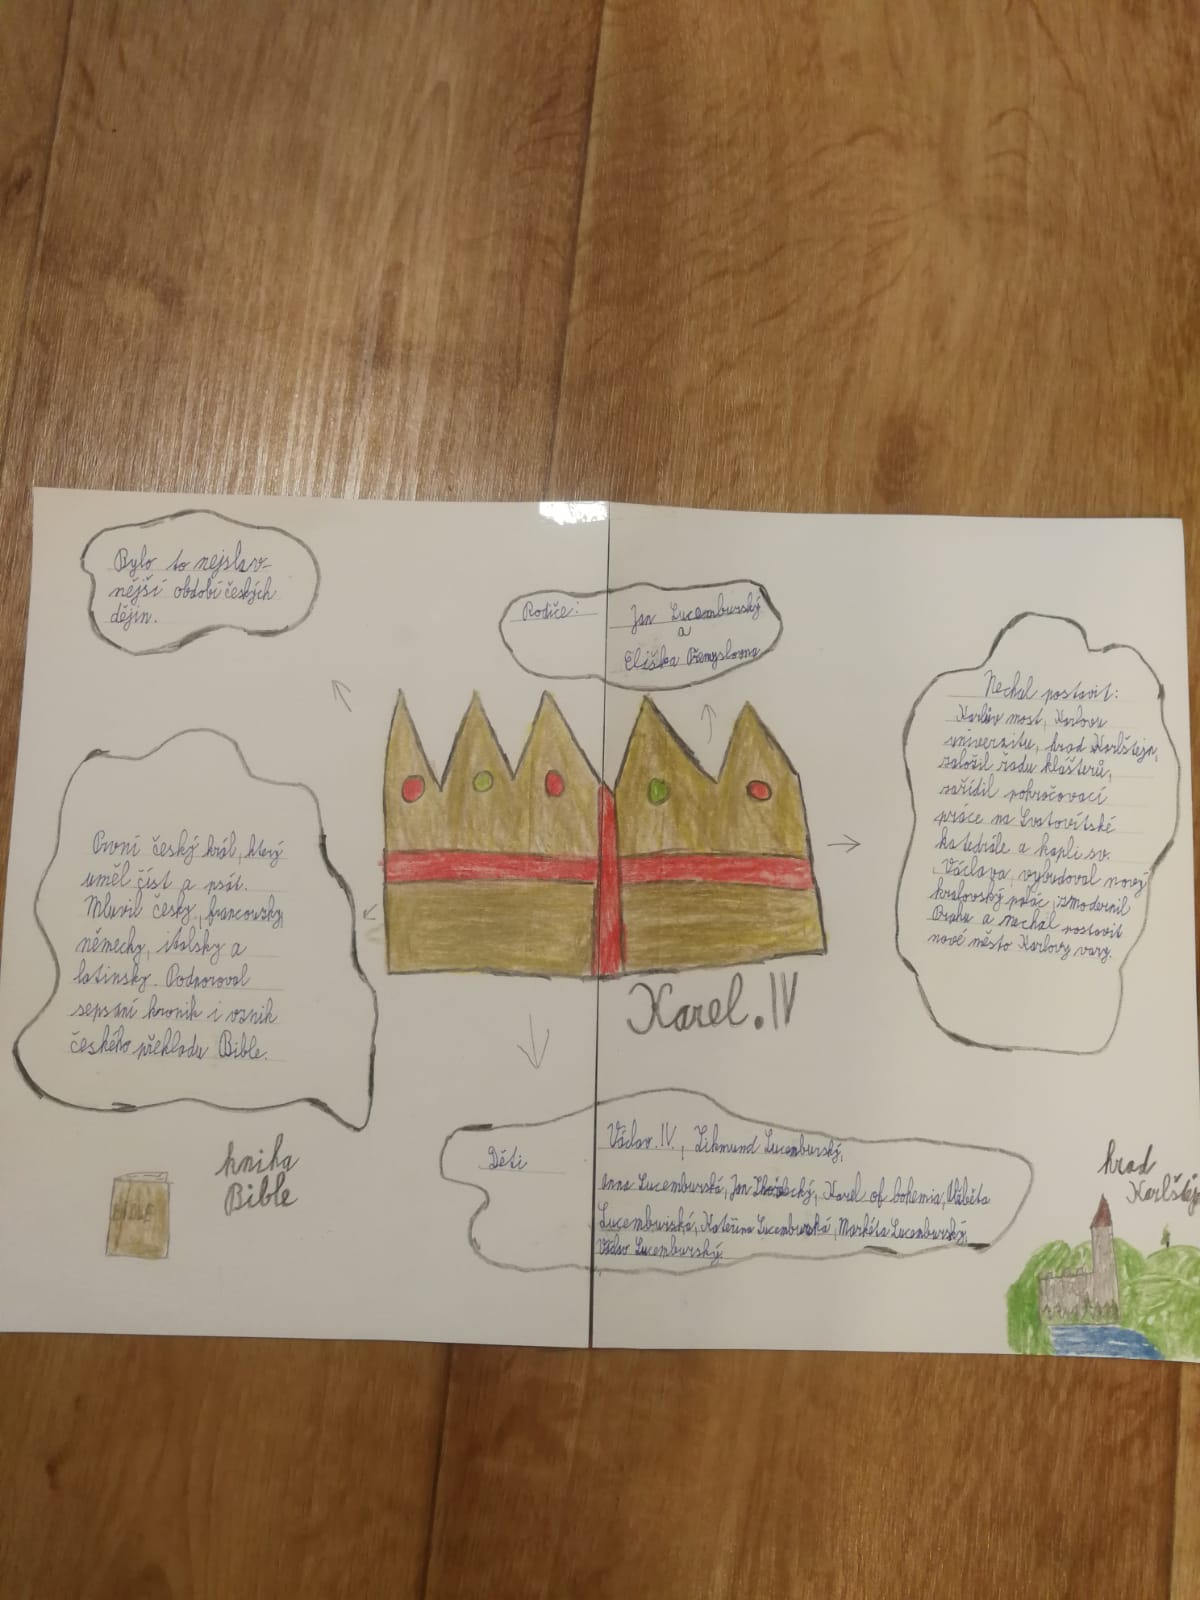 Bylo to nejslav-
nější období českých
dějin.
Rodiče: Jan Lucemburský
a
Eliška Přemyslovna
Nechal postavit:
Karlův most, Karlovu
univerzitu, hrad Karlštejn,
založil řadu klášterů,
zařídil pokračovací
práce na Svatovítské
katedrále a kapli sv.
Václava, vybudoval nový
kralovský palác, zmodernil
Prahu a nechal postavit
nové město Karlovy vary.
První český král, který
uměl číst a psát.
Mluvil česky, francouzky,
německy, italsky a
latinsky. Podporoval
sepsání kronik i vznik
českého překladu Bible.
Karel.IV
Děti
Václav.IV., Zikmund Lucemburský,
Anna Lucemburská, Jan Zhořelecký, Karel of bohemia, Alžběta
Lucemburská, Kateřina Lucemburská, Markéta Lucemburský,
Václav Lucemburský.
kniha
Bible
BIBLE
hrad
Karlštej